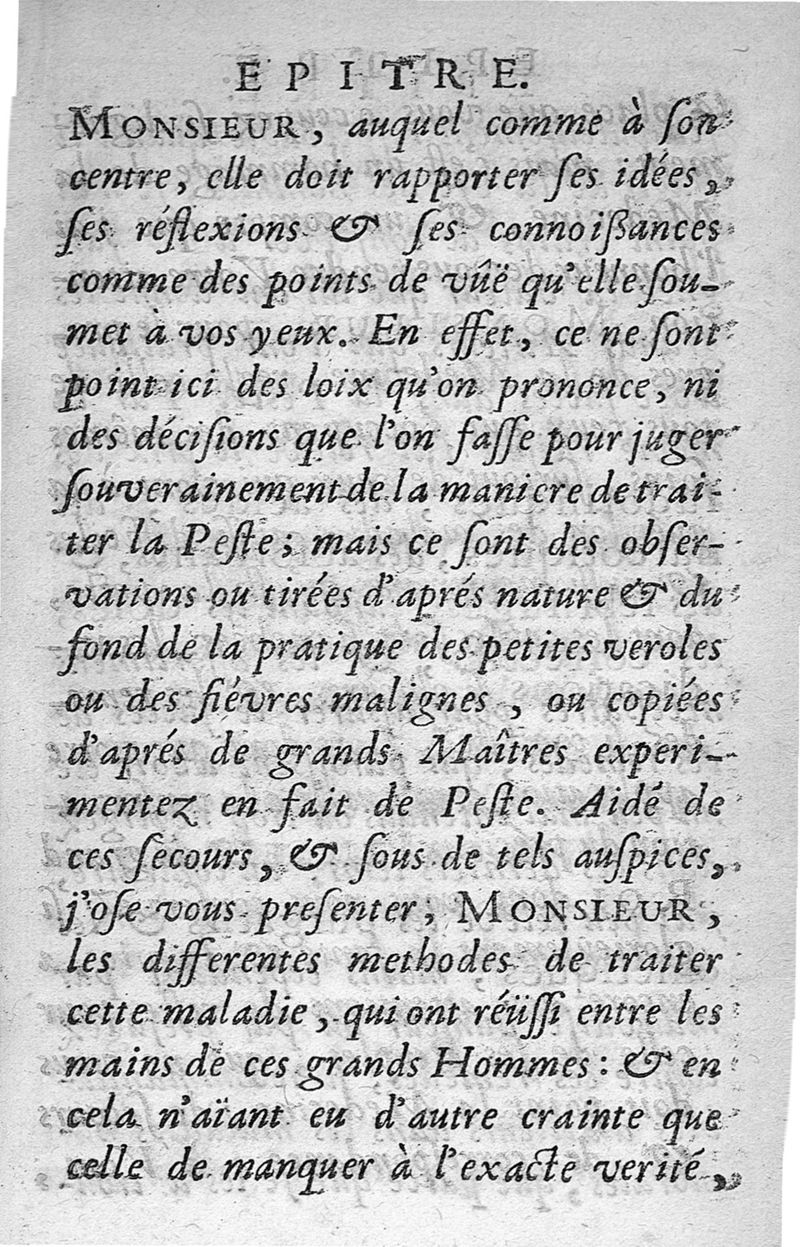 EPITRE.
MONSIEUR, auquel comme à ſon
centre, elle doit rapporter ſes idées,
ſes réflexions & ſes connoiſſances
comme des points de vûë qu'elle ſou-
met à vos yeux. En effet, ce ne ſont
point ici des loix qu'on prononce, ni
des déciſions que l'on faſſe pour juger
ſouverainement de la maniere de trai-
ter la Peſte; mais ce ſont des obſer-
vations ou tirées d'aprés nature & du
fond de la pratique des petites veroles
ou des fiévres malignes, ou copiées
d'aprés de grands Maîtres experi-
mentez en fait de Peſte. Aidé de
ces ſecours, & ſous de tels auſpices,
j'oſe vous preſenter, MONSIEUR,
les differentes methodes de traiter
cette maladie, qui ont réüſſi entre les
mains de ces grands Hommes: & en
cela n'aïant eu d'autre crainte que
celle de manquer à l'exacte verité,